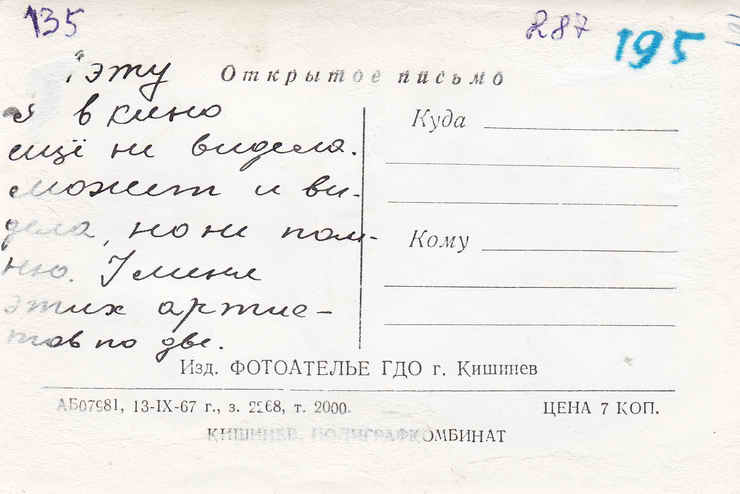 135
R87
195
эту
Открытое письмо
я в кино
ещё не видела.
может и ви-
дела, но не пом-
ню. У меня
этих артис-
тов по две.
Куда
Кому
Изд. ФОТОАТЕЛЬЕ ГДО г. Кишинев
АБ07981, 13-IX-67 г., з. 2268, т. 2000.
ЦЕНА 7 КОП.
КИШИНЕВ, ПОЛИГРАФКОМБИНАТ